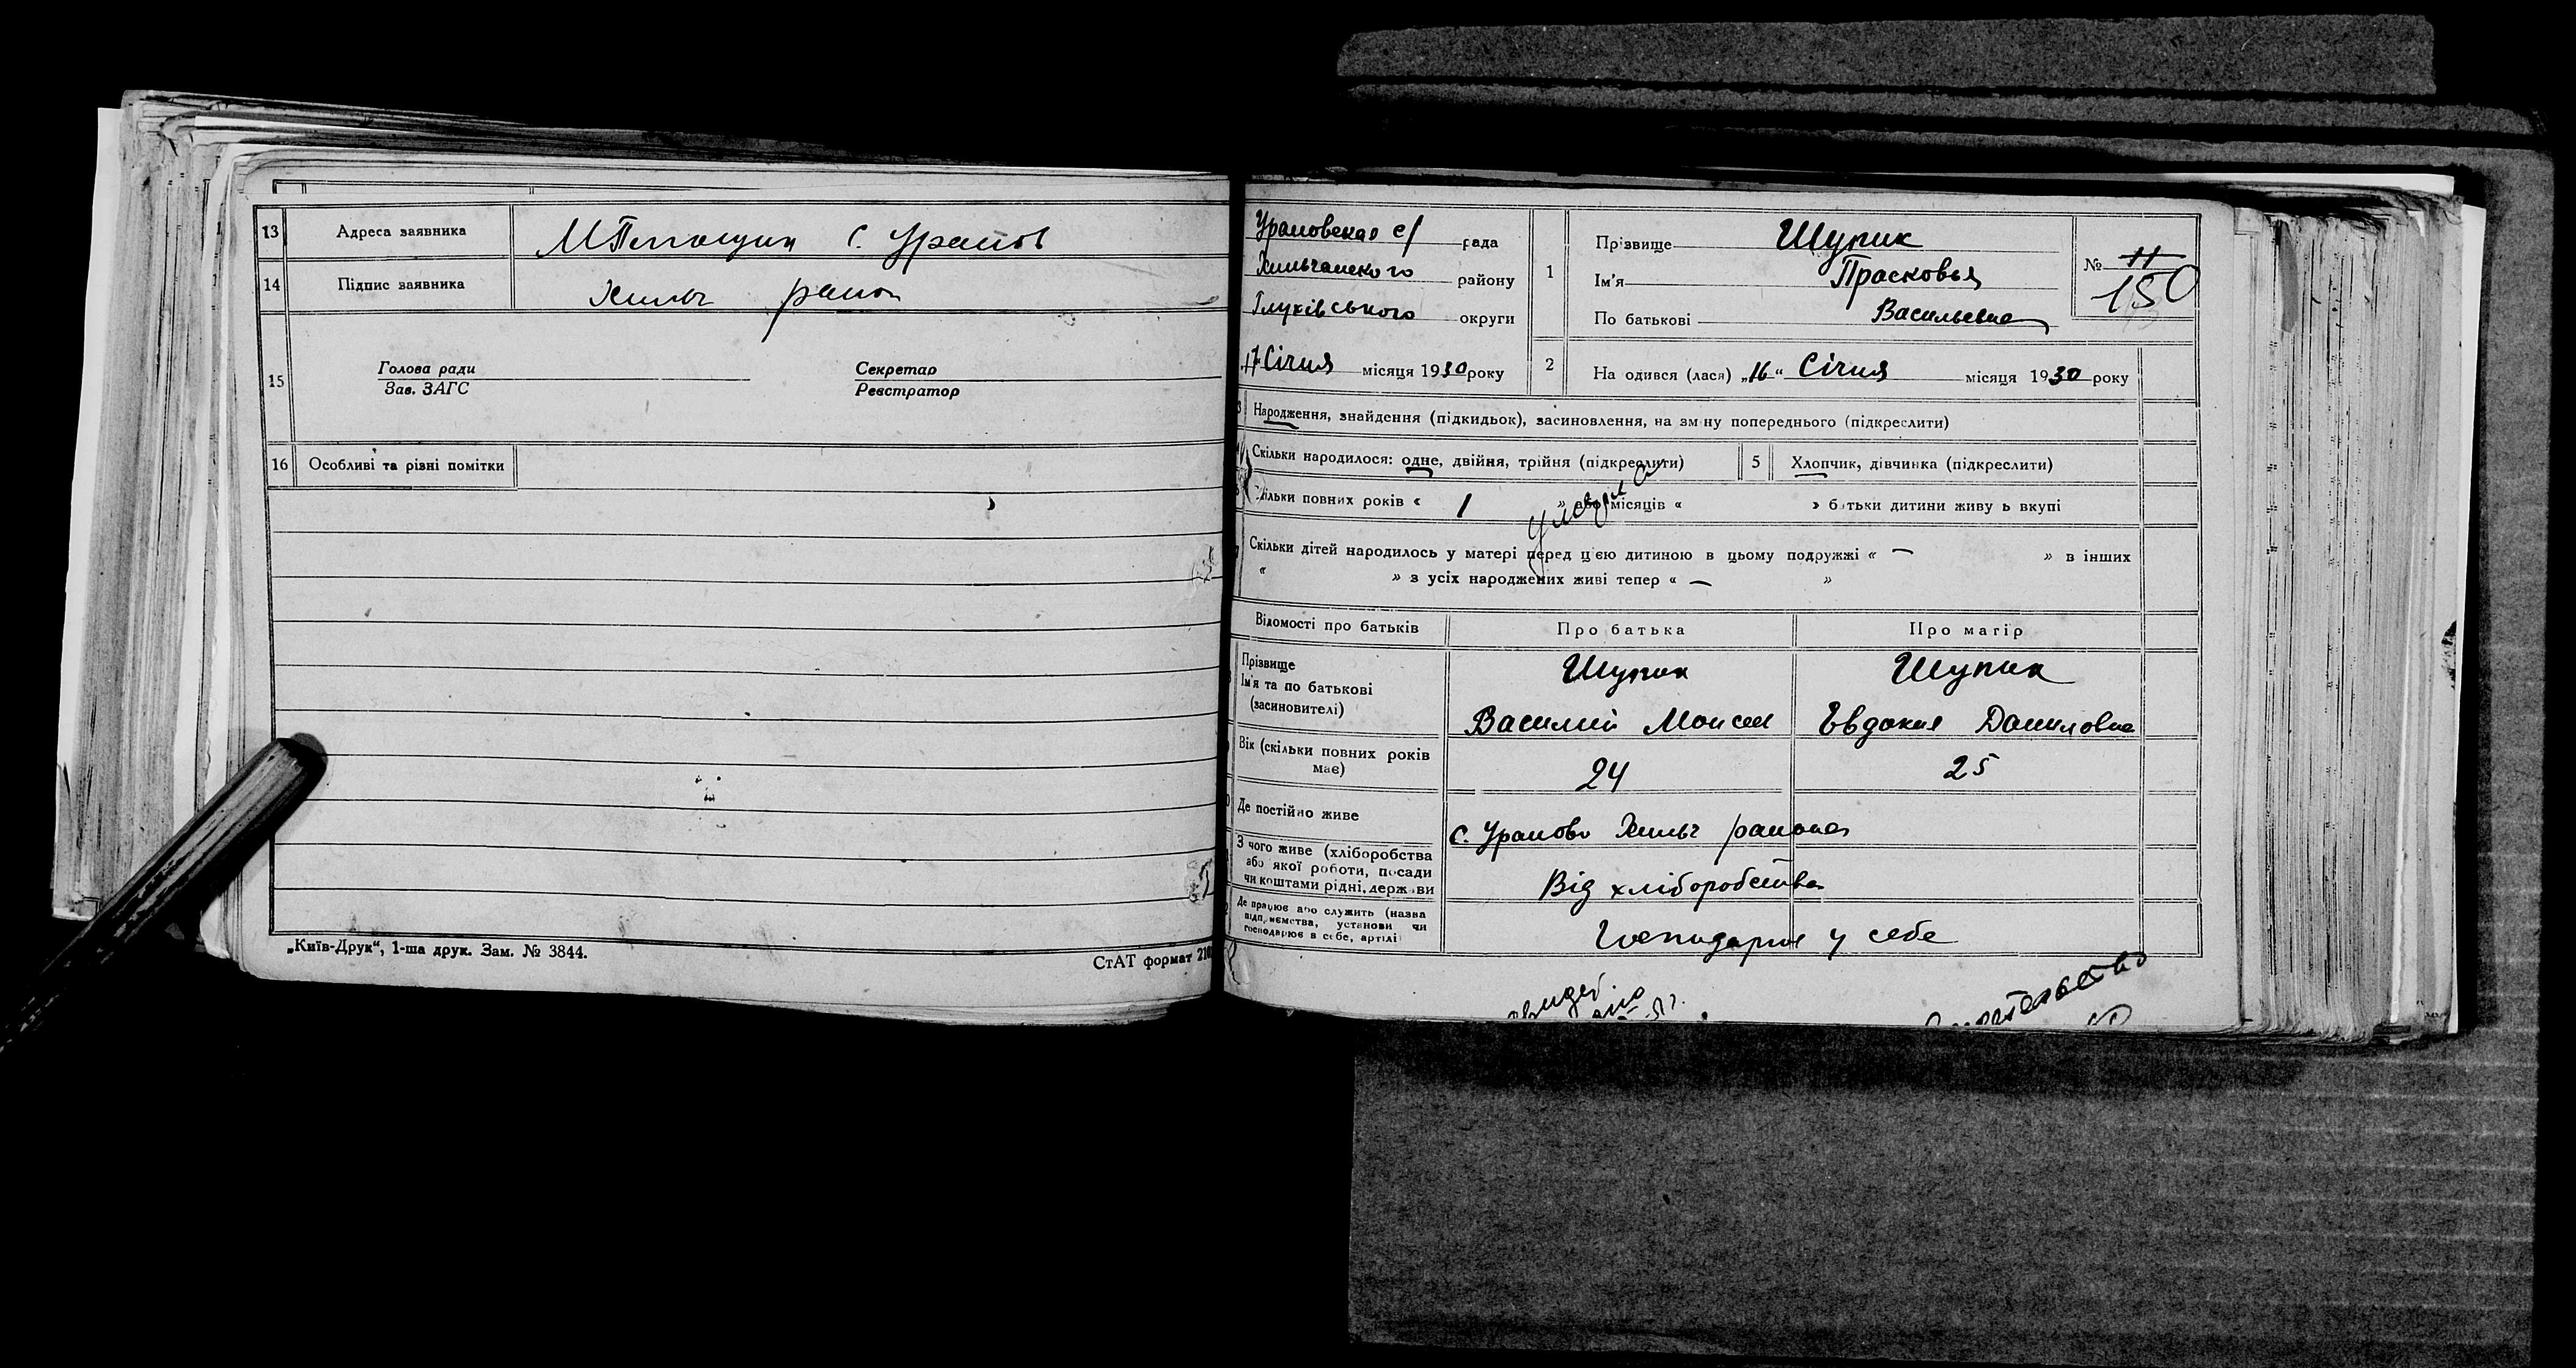 13 Адреса заявника с. Уралов
14 Підпис заявника Хильч район
15 Голова ради Секретар
Зав. ЗАГС Реєстратор
16 Особливі та різні помітки
„Київ-Друк“, 1-ша друк. Зам. № 3844.
СтАТ формат 210
Ураловская с/ рада
Хильчанского району
Глухівського округи
17 Січня місяця 1930 року
1 Прізвище Шупик
Ім'я Прасковья
По батькові Васильевна
№ 11
150
2 На одився (лася) „16“ Січня місяця 1930 року
Народження, знайдення (підкидьок), засиновлення, на зміну попереднього (підкреслити)
Скільки народилося: одне, двійня, трійня (підкреслити) 5 Хлопчик, дівчинка (підкреслити)
Скільки повних років « 1 » або місяців « » батьки дитини живуть вкупі
Скільки дітей народилось у матері перед цією дитиною в цьому подружжі « — » в інших
« » з усіх народжених живі тепер « — »
Відомості про батьків Про батька Про матір
Прізвище Шупик Шупик
Ім'я та по батькові
(засиновителі) Василий Моисеи Евдокия Даниловна
Вік (скільки повних років
має) 24 25
Де постійно живе с. Уралово Хильч района
З чого живе (хліборобства
або якої роботи, посади
чи коштами рідні, держави Від хліборобства
Де працює або служить (назва
підприємства, установи чи
господарює в себе, артілі) Господарює у себе
свидет.